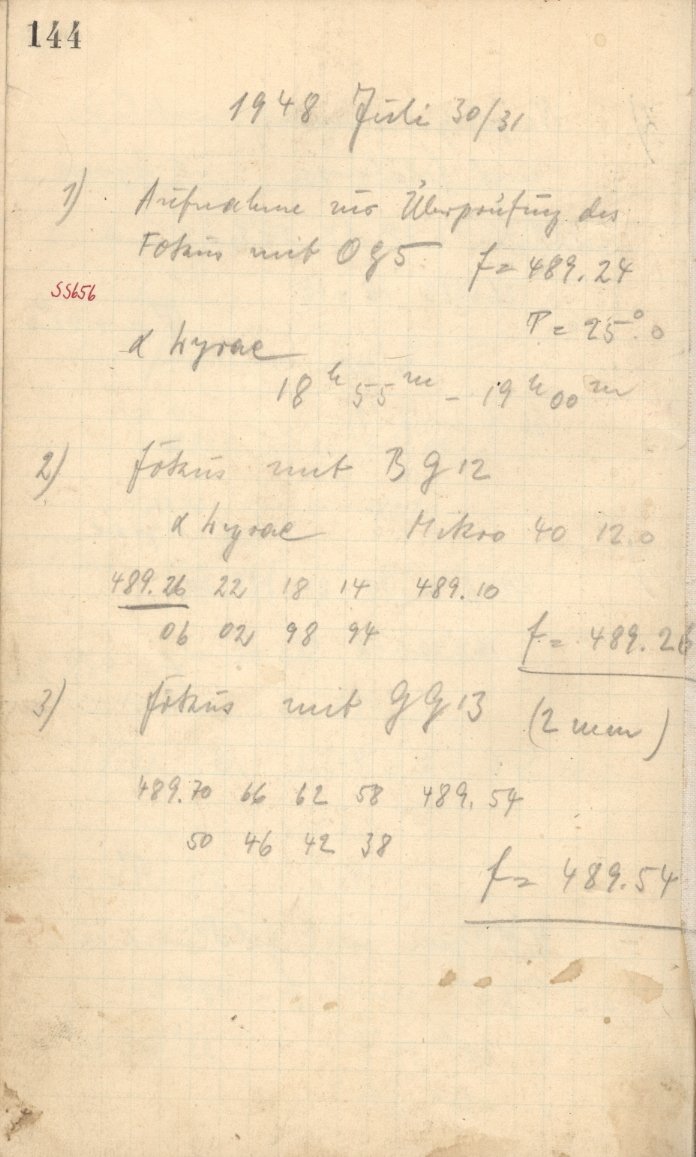 144
1948 Juli 30/31
1) Aufnahme zur Überprüfung des
Fokus mit OG5 f = 489.24
SS656
T = 25°.0
α Lyrae
18h 55m - 19h 00m
2) Fokus mit BG 12
α Lyrae Mikro 40 12.0
489.26 22 18 14 489.10
06 02 98 94
f = 489.26
3) Fokus mit GG 13 (2 mm)
489.70 66 62 58 489.54
50 46 42 38
f = 489.54